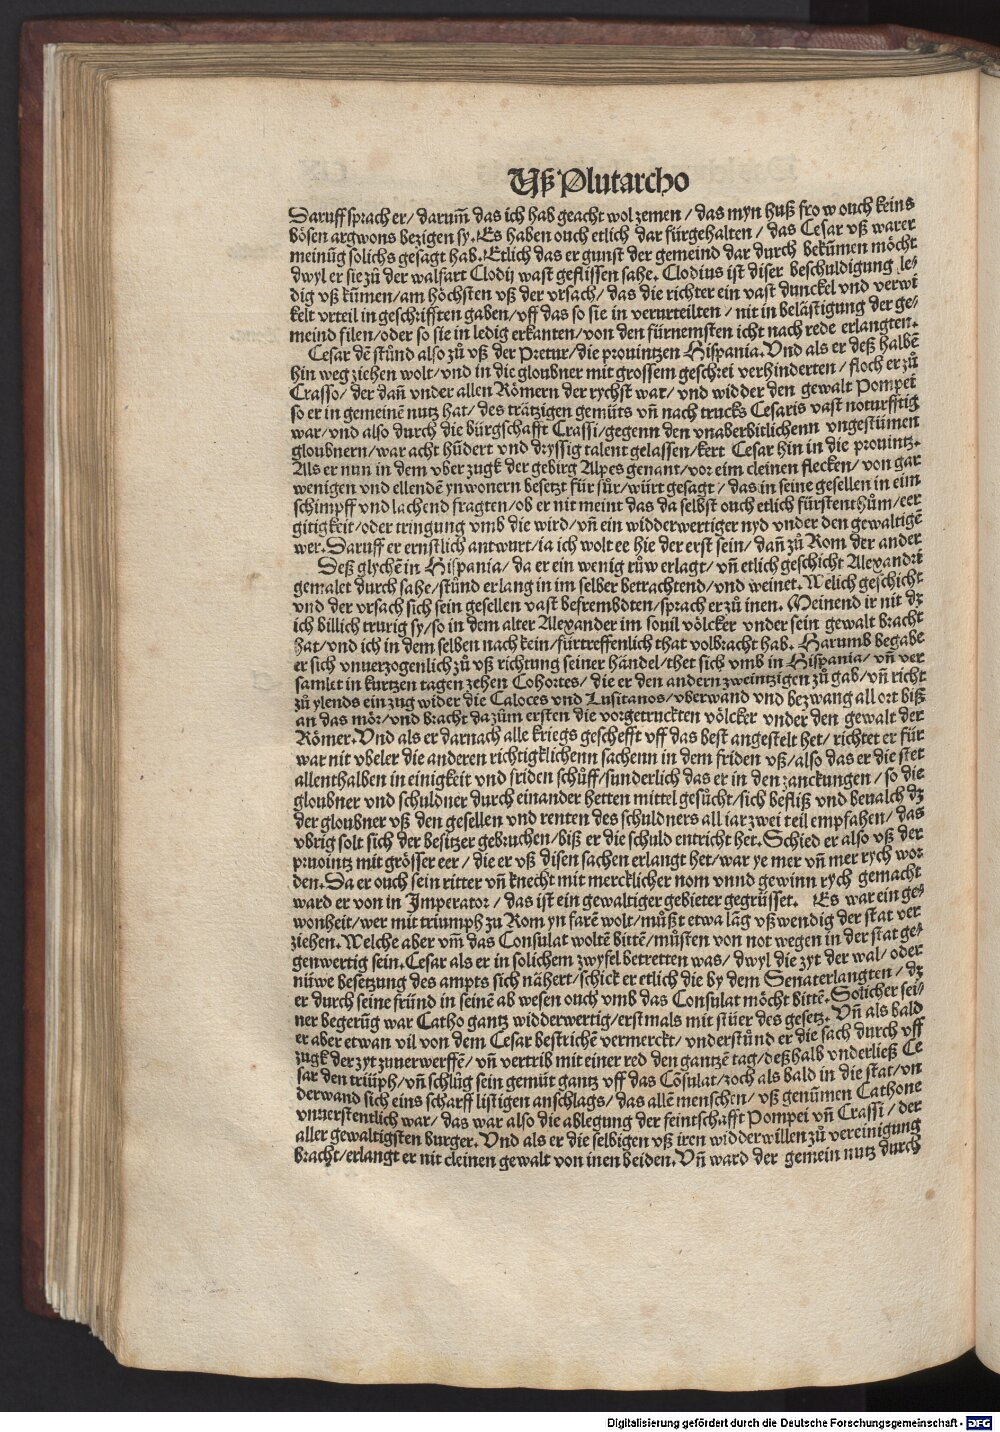 Vß Plutarcho
Daruff sprach er / darum̃ das ich hab geacht wol zemen / das myn huß frow ouch keins
bösen argwons bezigen sy. Es haben ouch etlich dar fürgehalten / das Cesar vß warer
meinũg solichs gesagt hab. Etlich das er gunst der gemeind dar durch bekũmen möcht
dwyl er sie zů der walfart Clodij wast geflissen sahe. Clodius ist diser beschuldigung le⸗
dig vß kũmen / am höchsten vß der vrsach / das die richter ein vast dunckel vnd verwi
kelt vrteil in geschrifften gaben / vff das so sie in verurteilten / nit in belästigung der ge⸗
meind filen / oder so sie in ledig erkanten / von den fürnemsten icht nach rede erlangten.
Cesar dẽ stůnd also zů vß der Pretur / die prouintzen Hispania. Vnd als er deß halbẽ
hin weg ziehen wolt / vnd in die gloubner mit grossem geschrei verhinderten / floch er zů
Crasso / der dañ vnder allen Römern der rychst war / vnd widder den gewalt Pompei
so er in gemeinẽ nutz hat / des trätzigen gemüts vñ nach trucks Cesaris vast noturfftig
war / vnd also durch die bürgschafft Crassi / gegenn den vnaberbitlichenn vngestümen
gloubnern / war acht hũdert vnd dryssig talent gelassen / kert Cesar hin in die prouintz.
Als er nun in dem vber zugk der gebirg Alpes genant / vor eim cleinen flecken / von gar
wenigen vnd ellendẽ ynwonern besetzt für fůr / würt gesagt / das in seine gesellen in eim
schimpff vnd lachend fragten / ob er nit meint das da selbst ouch etlich fürstenthům / eer
gitigkeit / oder tringung vmb die wird / vñ ein widderwertiger nyd vnder den gewaltigẽ
wer. Daruff er ernstlich antwurt / ia ich wolt ee hie der erst sein / dañ zů Rom der ander
Deß glychẽ in Hispania / da er ein wenig růw erlagt / vñ etlich geschicht Alexandri
gemalet durch sahe / stůnd er lang in im selber betrachtend / vnd weinet. Welich geschicht
vnd der vrsach sich sein gesellen vast befrembdten / sprach er zů inen. Meinend ir nit dz
ich billich trurig sy / so in dem alter Alexander im souil völcker vnder sein gewalt bracht
hat / vnd ich in dem selben nach kein / fürtreffenlich that volbracht hab. Harumb begabe
er sich vnuerzogenlich zů vß richtung seiner händel / thet sich vmb in Hispania / vñ ver
samlet in kurtzen tagen zehen Cohortes / die er den andern zweintzigen zů gab / vñ richt
zů ylends ein zug wider die Caloces vnd Lusitanos / vberwand vnd bezwang all ort biß
an das mör / vnd bracht da zům ersten die vorgetruckten völcker vnder den gewalt der
Römer. Vnd als er darnach alle kriegs geschefft vff das best angestelt het / richtet er für
war nit vbeler die anderen richtigklichenn sachenn in dem friden vß / also das er die stet
allenthalben in einigkeit vnd friden schůff / sunderlich das er in den zanckungen / so die
gloubner vnd schuldner durch einander hetten mittel gesůcht / sich befliß vnd beualch dz
der gloubner vß den gesellen vnd renten des schuldners all iar zwei teil empfahen / das
vbrig solt sich der besitzer gebruchen / biß er die schuld entricht het. Schied er also vß der
pruointz mit grösser eer / die er vß disen sachen erlangt het / war ye mer vñ mer rych wor
den. Da er ouch sein ritter vñ knecht mit mercklicher nom vnnd gewinn rych gemacht
ward er von in Imperator / das ist ein gewaltiger gebieter gegrüsset. Es war ein ge⸗
wonheit / wer mit triumph zu Rom yn farẽ wolt / můßt etwa lãg vßwendig der stat ver
ziehen. Welche aber vm̃ das Consulat woltẽ bittẽ / můsten von not wegen in der stat ge⸗
genwertig sein. Cesar als er in solichem zwyfel betretten was / dwyl die zyt der wal / oder
nüwe besetzung des ampts sich nähert / schick er etlich die by dem Senat erlangten / dz
er durch seine fründ in seinẽ ab wesen ouch vmb das Consulat möcht bittẽ. Solicher sei⸗
ner begerũg war Catho gantz widderwertig / erstmals mit stüer des gesetz. Vñ als bald
er aber etwan vil von dem Cesar bestrichẽ vermerckt / vnderstůnd er die sach durch vff
zugk der zyt zunerwerffẽ / vñ vertrib mit einer red den gantzẽ tag / deßhalb vnderließ Ce
sar den triũph / vñ schlůg sein gemüt gantz vff das Cõsulat / zoch als bald in die stat / vn
derwand sich eins scharff listigen anschlags / das allẽ menschen / vß genũmen Cathone
vnuerstentlich war / das war also die ablegung der feintschafft Pompei vñ Crassi / der
aller gewaltigsten burger. Vnd als er die selbigen vß iren widderwillen zů vereinigung
bracht / erlangt er nit cleinen gewalt von inen beiden. Vñ ward der gemein nutz durch
Digitalisierung gefördert durch die Deutsche Forschungsgemeinschaft - DFG